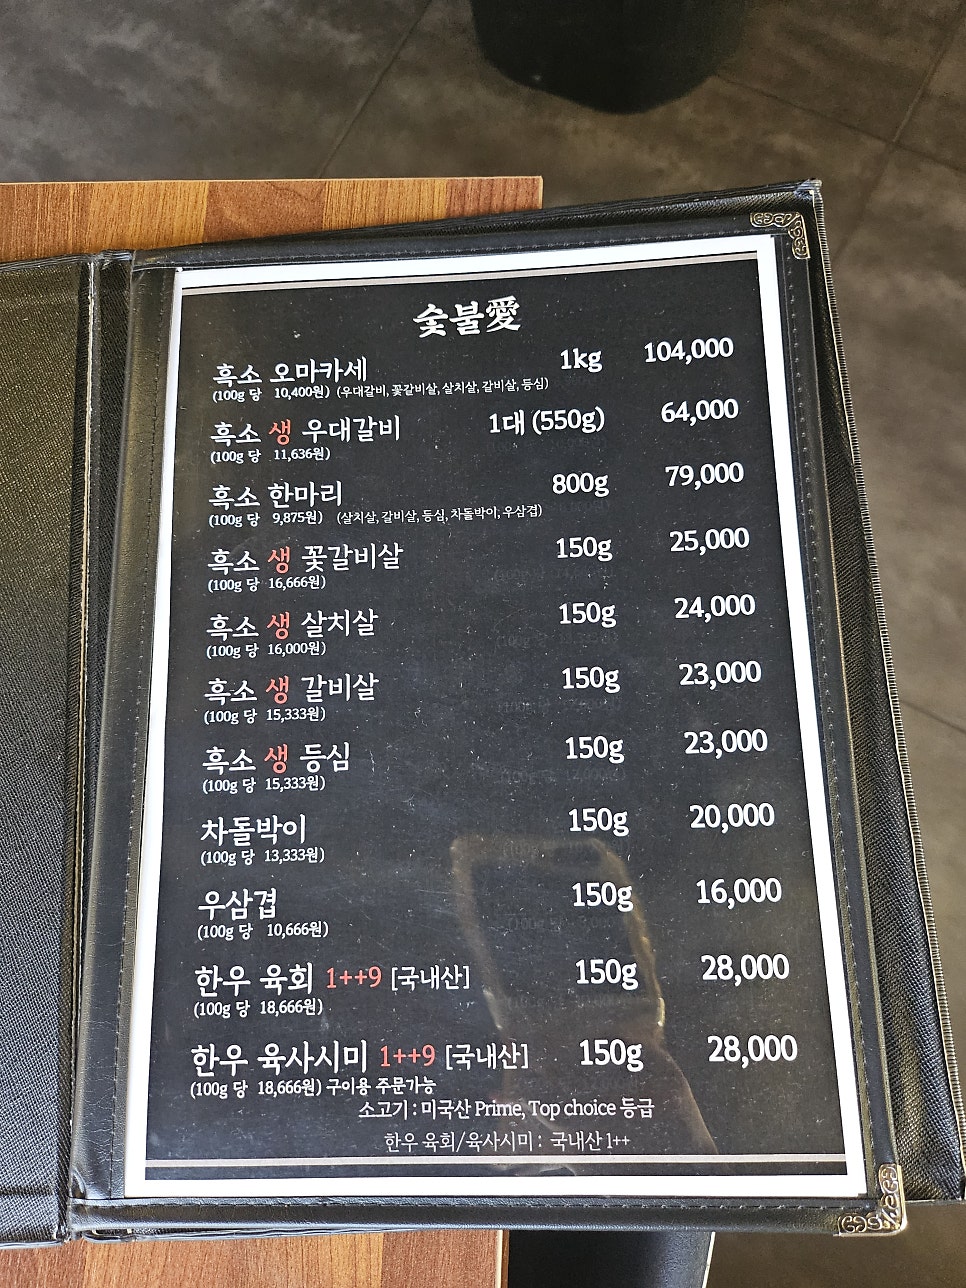 숯불愛
흑소 오마카세 1kg 104,000
(100g 당 10,400원) (우대갈비, 꽃갈비살, 살치살, 갈비살, 등심)
흑소 생 우대갈비 1대 (550g) 64,000
(100g 당 11,636원)
흑소 한마리 800g 79,000
(100g 당 9,875원) (살치살, 갈비살, 등심, 차돌박이, 우삼겹)
흑소 생 꽃갈비살 150g 25,000
(100g 당 16,666원)
흑소 생 살치살 150g 24,000
(100g 당 16,000원)
흑소 생 갈비살 150g 23,000
(100g 당 15,333원)
흑소 생 등심 150g 23,000
(100g 당 15,333원)
차돌박이 150g 20,000
(100g 당 13,333원)
우삼겹 150g 16,000
(100g 당 10,666원)
한우 육회 1++9 [국내산] 150g 28,000
(100g 당 18,666원)
한우 육사시미 1++9 [국내산] 150g 28,000
(100g 당 18,666원) 구이용 주문가능
소고기 : 미국산 Prime, Top choice 등급
한우 육회/육사시미 : 국내산 1++